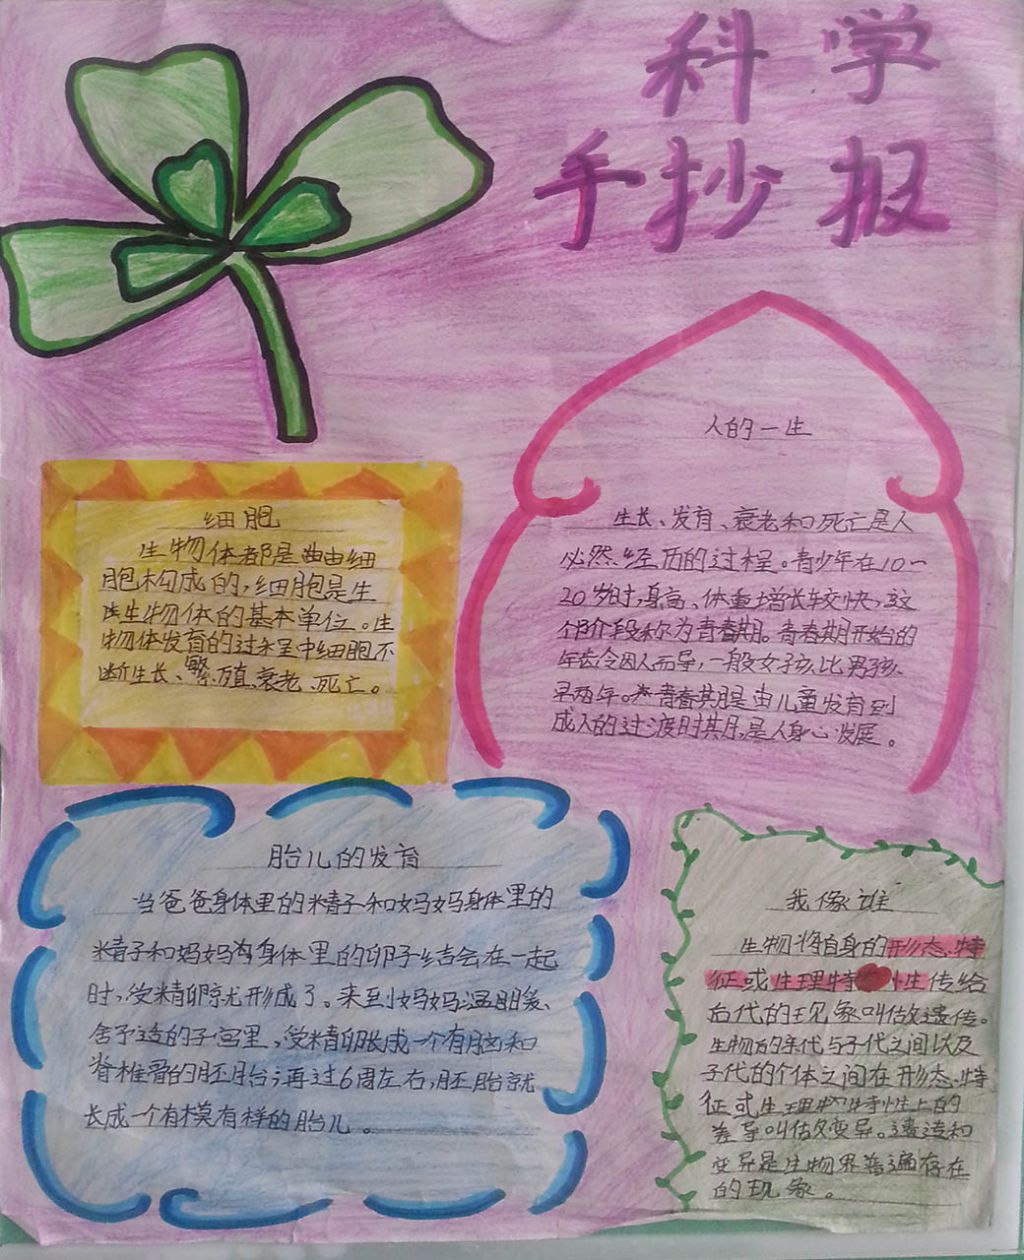 科学
手抄报
人的一生
生长、发育、衰老和死亡是人
必然经历的过程。青少年在10—
20岁时,身高、体重增长较快,这
个阶段称为青春期。青春期开始的
年龄令因人而异,一般女孩比男孩
早两年。青春期是由儿童发育到
成人的过渡时期,是人身心发展。
细胞
生物体都是由细
胞构成的,细胞是生
生物体的基本单位。生
物体发育的过程中细胞不
断生长、繁殖、衰老、死亡。
胎儿的发育
当爸爸身体里的精子和妈妈身体里的
精子和妈妈身体里的卵子结会在一起
时,受精卵就形成了。来到妈妈温暖、
舍予适的子宫里,受精卵长成一个有脑和
脊椎骨的胚胎;再过6周左右,胚胎就
长成一个有模有样的胎儿。
我像谁
生物将自身的形态特
征或生理特性传给
后代的现象叫做遗传。
生物的亲代与子代之间以及
子代的个体之间在形态特
征或生理特性上的
差异叫做变异。遗传和
变异是生物界普遍存在
的现象。